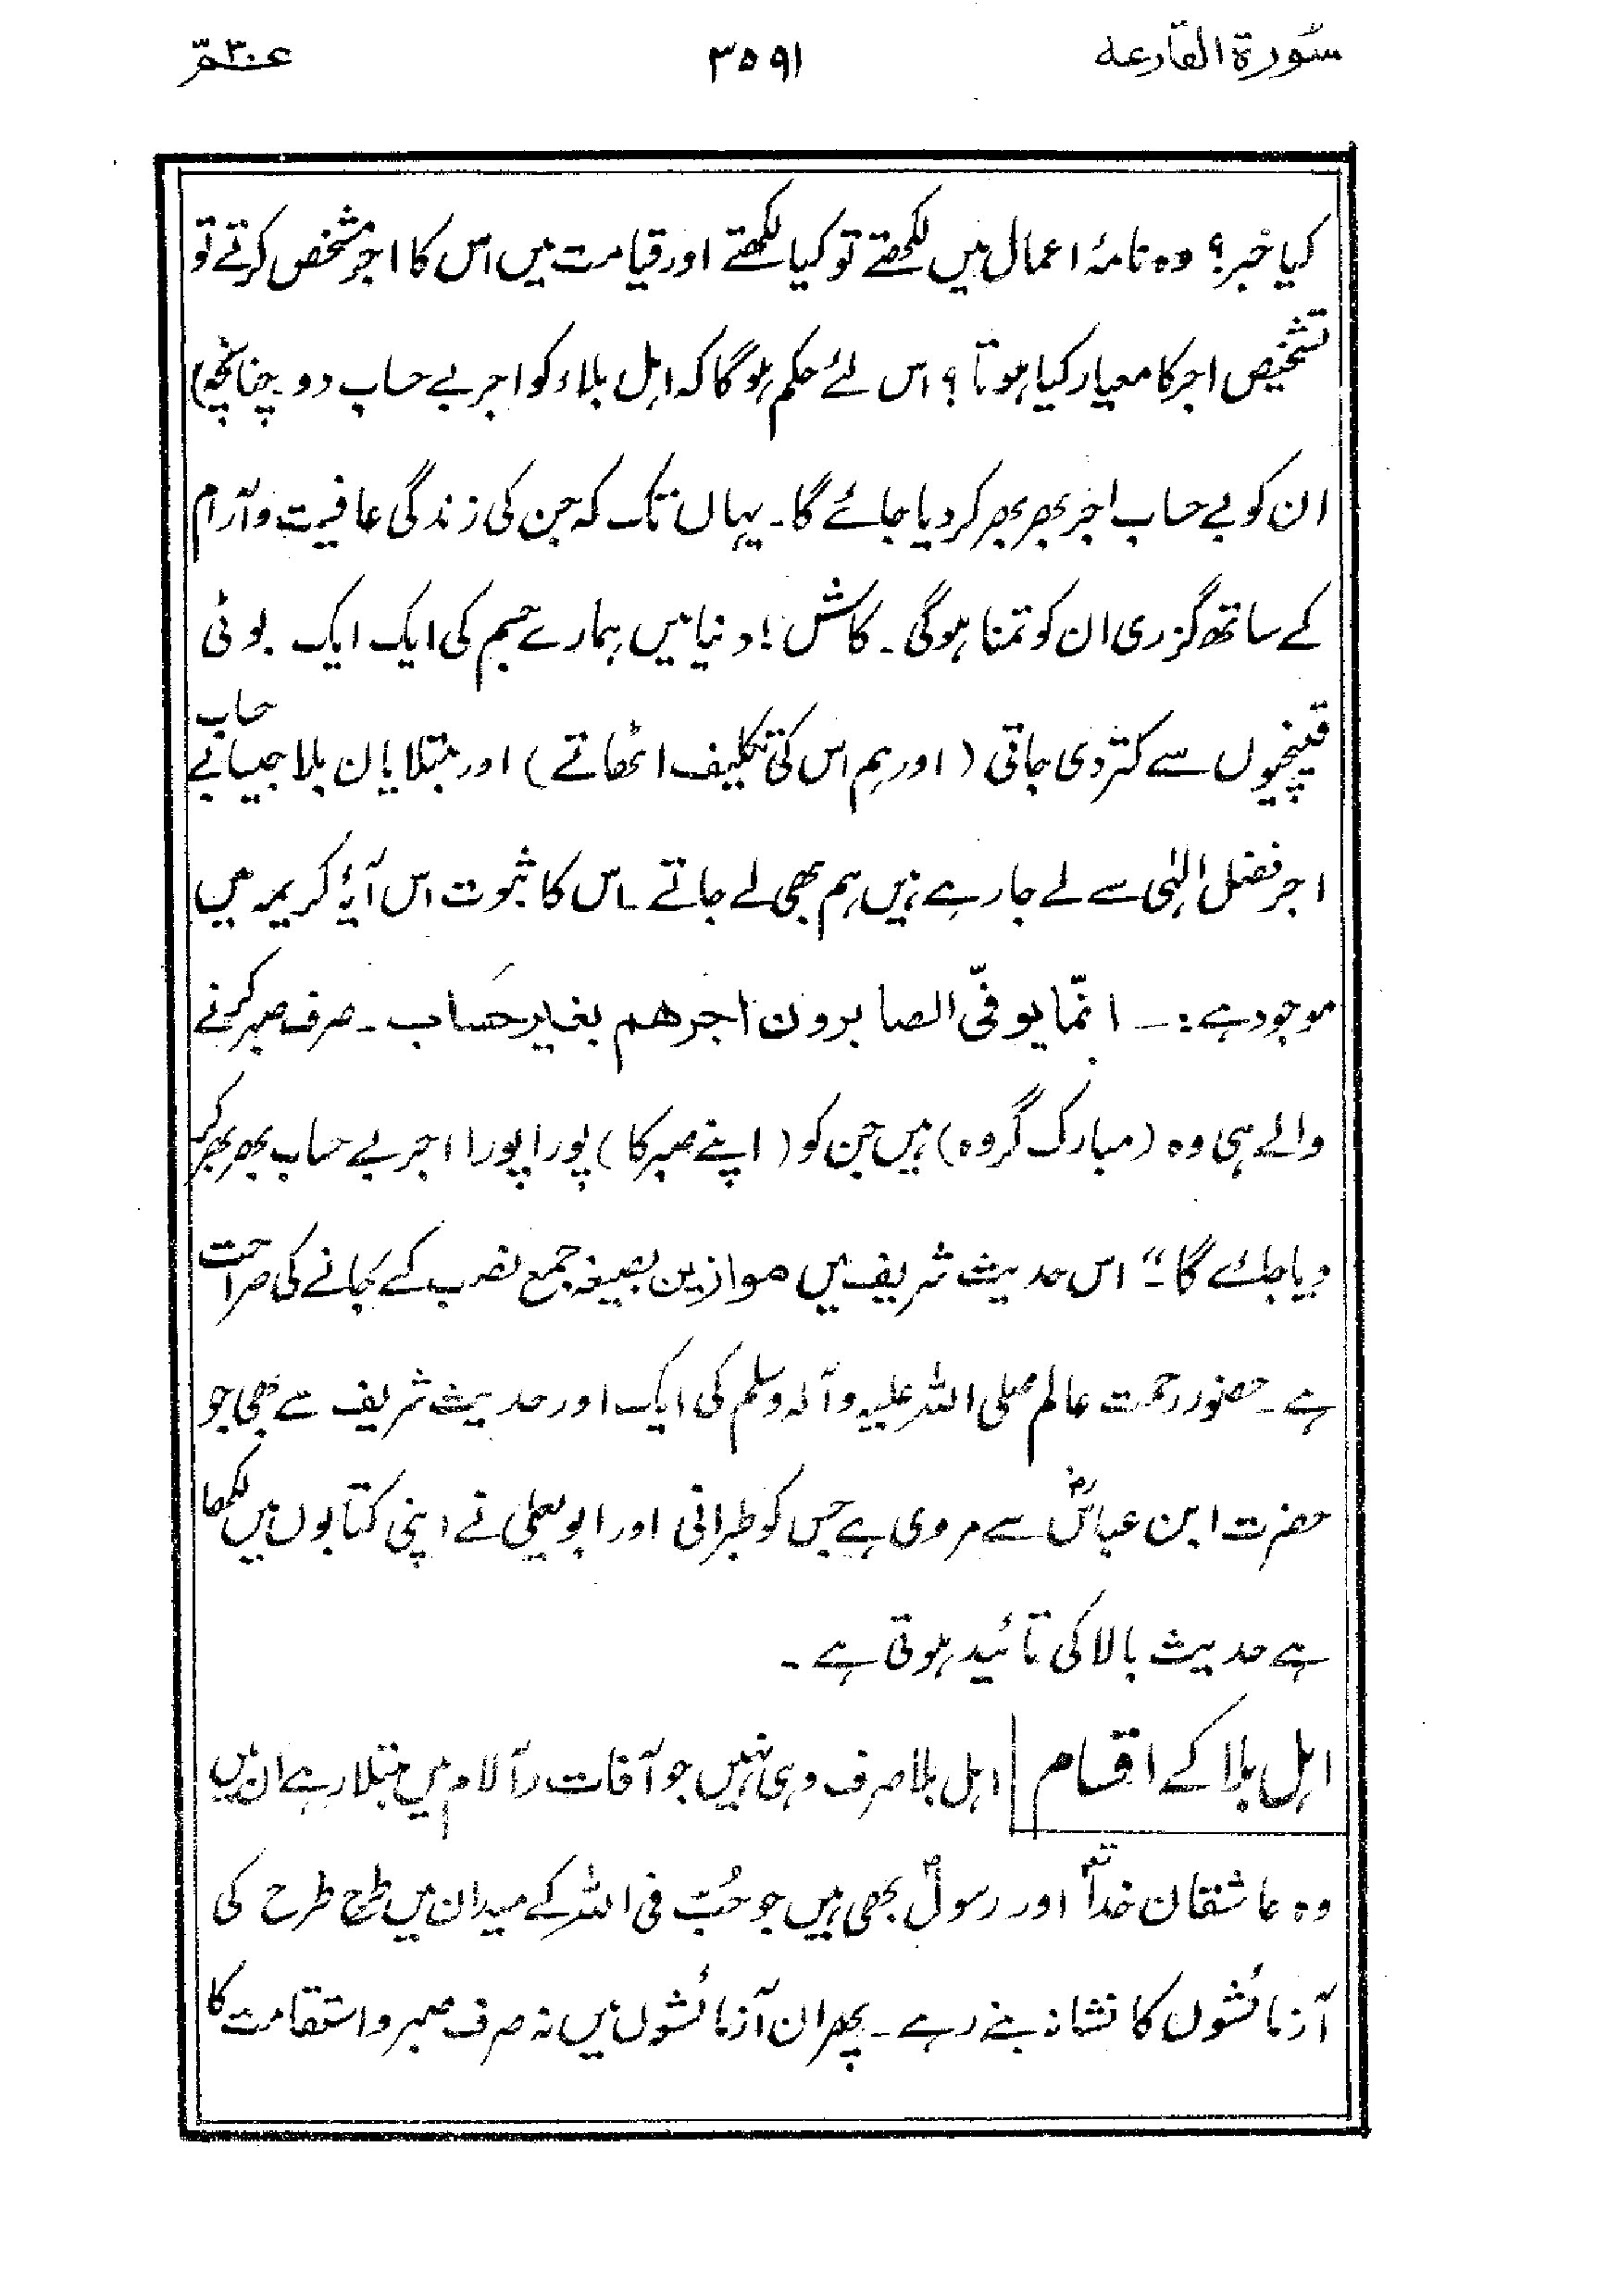 سُورة القارعه ۳۵۹۱ عمّ ۳۰
کیا خبر؟ وہ نامۂ اعمال میں لکھتے تو کیا لکھتے اور قیامت میں اس کا اجر مشخص کرتے تو
تشخیص اجر کا معیار کیا ہوتا؟ اس لئے حکم ہوگا کہ اہل بلاء کو اجر بے حساب دو۔ چنانچہ)
ان کو بے حساب اجر بھر بھر کر دیا جائے گا۔ یہاں تک کہ جن کی زندگی عافیت و آرام
کے ساتھ گزری ان کو تمنا ہوگی۔ کاش! دنیا میں ہمارے جسم کی ایک ایک بوٹی
قینچیوں سے کتر دی جاتی (اور ہم اس کی تکلیف اٹھاتے) اور مبتلایان بلا جیسا بے حساب
اجر فضل الٰہی سے لے جا رہے ہیں ہم بھی لے جاتے۔ اس کا ثبوت اس آیۂ کریمہ میں
موجود ہے:۔ انّما یوفّی الصابرون اجرهم بغیر حَساب۔ صرف صبر کرنے
والے ہی وہ (مبارک گروہ) ہیں جن کو (اپنے صبر کا) پورا پورا اجر بے حساب بھر بھر کر
دیا جائے گا۔" اس حدیث شریف میں موازین بصیغہ جمع نصب کئے جانے کی صراحت
ہے۔ حضور رحمت عالم صلی اللہ علیہ وآلہ وسلم کی ایک اور حدیث شریف سے بھی جو
حضرت ابن عباسؓ سے مروی ہے جس کو طبرانی اور ابو یعلی نے اپنی کتابوں میں لکھا
ہے حدیث بالا کی تائید ہوتی ہے۔
اہل بلا کے اقسام | اہل بلا صرف وہی نہیں جو آفات و آلام میں مبتلا رہے ان میں
وہ عاشقان خداؐ اور رسولؐ بھی ہیں جو حُبّ فی اللہ کے میدان میں طرح طرح کی
آزمائشوں کا نشانہ بنے رہے۔ پھر ان آزمائشوں میں نہ صرف صبر و استقامت کا